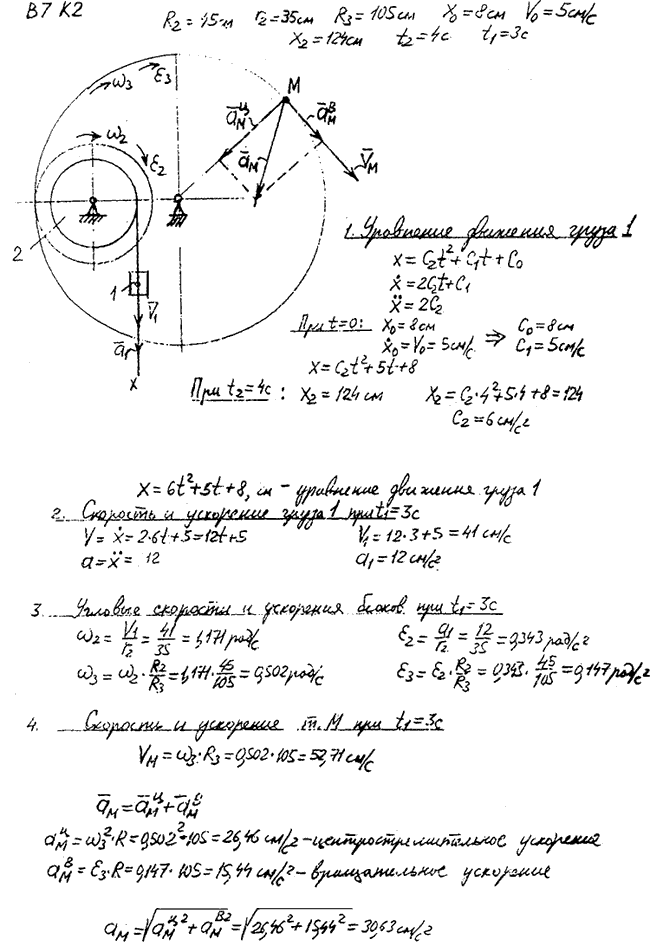 В7 К2
R₂=45см r₂=35см R₃=105см X₀=8см V₀=5см/с
X₂=124см t₂=4с t₁=3с
ω₃ ε₃
M
ā_M^ц ā_M^в
ω₂
ε₂ ā_M V̄_M
2
1
V̄₁
ā₁
x
1. Уравнение движения груза 1
x=C₂t²+C₁t+C₀
ẋ=2C₂t+C₁
ẍ=2C₂
При t=0: X₀=8см ⇒ C₀=8см
ẋ₀=V₀=5см/с C₁=5см/с
x=C₂t²+5t+8
При t₂=4с: X₂=124см X₂=C₂·4²+5·4+8=124
C₂=6см/с²
X=6t²+5t+8, см – уравнение движения груза 1
2. Скорость и ускорение груза 1 при t₁=3с
V=ẋ=2·6t+5=12t+5 V₁=12·3+5=41см/с
a=ẍ= 12 a₁=12см/с²
3. Угловые скорости и ускорения блоков при t₁=3с
ω₂=V₁/r₂=41/35=1,171рад/с ε₂=a₁/r₂=12/35=0,343рад/с²
ω₃=ω₂·R₂/R₃=1,171·45/105=0,502рад/с ε₃=ε₂·R₂/R₃=0,343·45/105=0,147рад/с²
4. Скорости и ускорение т.М при t₁=3с
V_M=ω₃·R₃=0,502·105=52,71см/с
ā_M=ā_M^ц+ā_M^в
a_M^ц=ω₃²·R=0,502²·105=26,46см/с²–центростремительное ускорение
a_M^в=ε₃·R=0,147·105=15,44см/с²–вращательное ускорение
a_M=√(a_M^ц²+a_M^в²)=√(26,46²+15,44²)=30,63см/с²